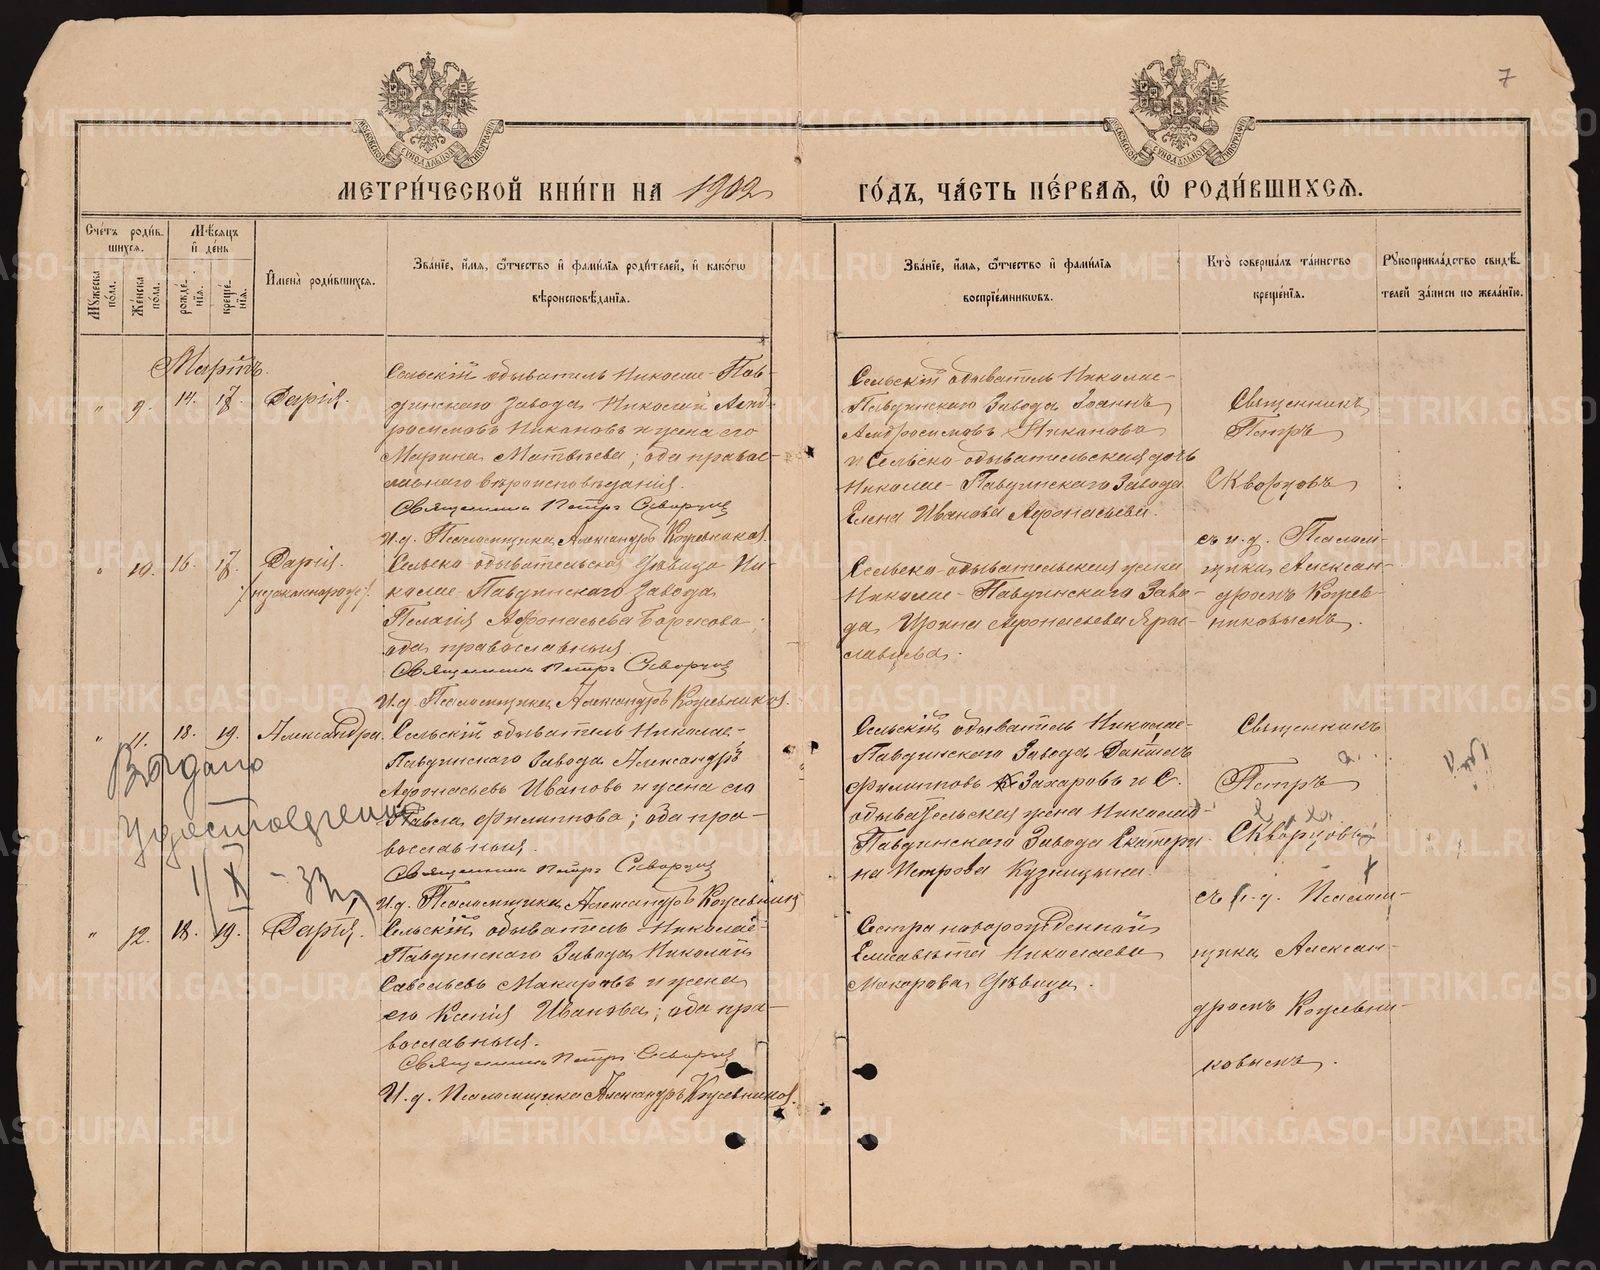 7
МОСКОВСКОЙ СѴНОДАЛЬНОЙ ТИПОГРАФІИ
МОСКОВСКОЙ СѴНОДАЛЬНОЙ ТИПОГРАФІИ
МЕТРИ́ЧЕСКОЙ КНИ́ГИ НА 1902 ГО́ДЪ, ЧА́СТЬ ПЕ́РВАѦ, Ѿ РОДИ́ВШИХСѦ.
Сче́тъ роди́в-
шихсѧ.
Мꙋ́жеска по́ла.
Же́нска по́ла.
Мѣ́сѧцъ
и҆ де́нь
рожде́-
нїѧ.
креще́-
нїѧ.
И҆мена̀ роди́вшихсѧ.
Зва́нїе, и҆́мѧ, ѻ҆́тчество и҆ фами́лїѧ роди́телей, и҆ како́гѡ
вѣроисповѣ́данїѧ.
Зва́нїе, и҆́мѧ, ѻ҆́тчество и҆ фами́лїѧ
воспрїе́мниковъ.
Кто̀ соверша́лъ та́инство
креще́нїѧ.
Рꙋкоприкла́дство свидѣ́-
телей за́писи по жела́нїю.
Мартъ.
" 9. 14. 17. Дарія.
Сельскій обыватель Николае-Пав-
динскаго Завода Николай Анд-
росимовъ Никановъ и жена его
Марина Матвѣева; оба правос-
лавнаго вѣроисповѣданія.
Священникъ Петръ Скворцов
И.д. Псаломщика Александръ Кожевников.
Сельскій обыватель Николае-
Павдинскаго Завода Іоаннъ
Андросимовъ Никановъ
и Сельско-обывательская дочь
Николае-Павдинскаго Завода
Елена Иванова Афонасьева.
Священникъ
Петръ
Скворцовъ
съ и.д. Псалом-
щика Алексан-
дромъ Кожев-
никовымъ.
" 10. 16. 17. Дарія.
/незаконнорожд/.
Сельско-обывательская дѣвица Ни-
колае-Павдинскаго Завода
Пелагія Афонасьева Борисова;
оба православныя
Священникъ Петръ Скворцов
И.д. Псаломщика Александръ Кожевников.
Сельско-обывательская жена
Николае-Павдинскаго Заво-
да Ирина Афонасьева Ярос-
лавцева.
" 11. 18. 19. Александра.
Сельскій обыватель Николае-
Павдинскаго Завода Александръ
Афонасьевъ Ивановъ и жена его
Павла Филиппова; оба пра-
вославныя.
Священникъ Петръ Скворцов
И.д. Псаломщика Александръ Кожевник
Сельскій обыватель Николае-
Павдинскаго Завода Даніилъ
Филиповъ Захаровъ и С.
обывательская жена Николае-
Павдинскаго Завода Екатери-
на Петрова Кузнецына.
Священникъ
Петръ
Скворцовъ
съ и.д. Псалом-
щика Алексан-
дромъ Кожевни-
ковымъ.
Выдано
Удостоверение
1/X - 32
" 12. 18. 19. Дарія.
Сельскій обыватель Николае-
Павдинскаго Завода Николай
Савельевъ Макаровъ и жена
его Ксенія Иванова; оба пра-
вославныя.
Священникъ Петръ Скворцов
И.д. Псаломщика Александръ Кожевников.
Сестра новорожденной
Елисавета Николаева
Макарова дѣвица.
METRIKI.GASO-URAL.RU